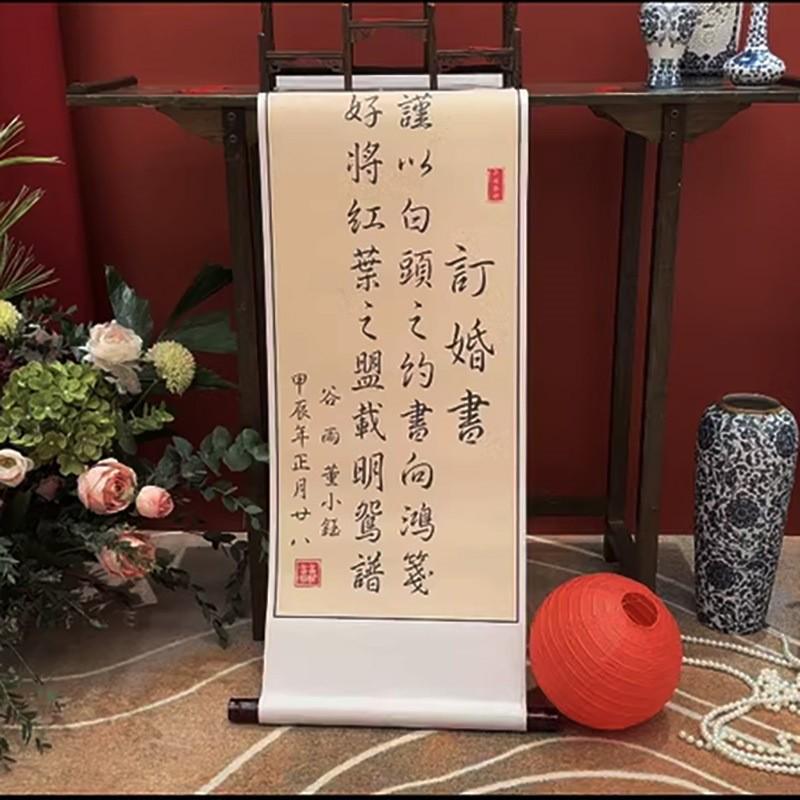 訂婚書
謹以白頭之約書向鴻箋
好將紅葉之盟載明鴛譜
谷雨 董小鈺
甲辰年正月廿八